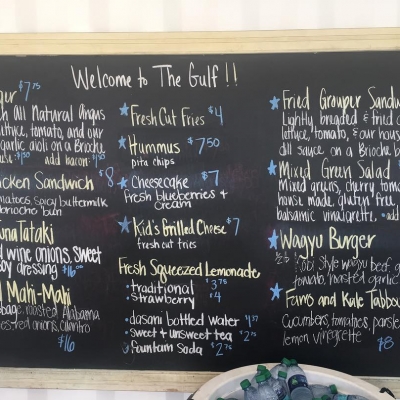 Welcome to The Gulf !!
$7.75
All Natural Angus
lettuce, tomato, and our
garlic aioli on a Brioche
$1.50 add bacon: $1.50
Sandwich $8
tomatoes, spicy buttermilk
brioche bun
Tuna Tataki
wine onions, sweet
soy dressing $16.00
Mahi-Mahi
roasted Alabama
red onions, cilantro
$16
Fresh Cut Fries $4
Hummus $7.50
pita chips
Cheesecake $7
Fresh blueberries +
cream
Kid's Grilled Cheese $7
fresh cut fries
Fresh Squeezed Lemonade
• traditional $3.75
• strawberry $4
• dasani bottled water 4.37
• sweet + unsweet tea $2.75
fountain soda $2.75
Fried Grouper
Lightly breaded + fried
lettuce, tomato, & our house
dill sauce on a Brioche
Mixed Green Salad
Mixed greens, cherry
house made gluten free
balsamic vinaigrette. • add
Wagyu Burger
style wagyu beef,
tomato, roasted garlic
and Kale
Cucumbers, tomatoes,
lemon vinegrette $8